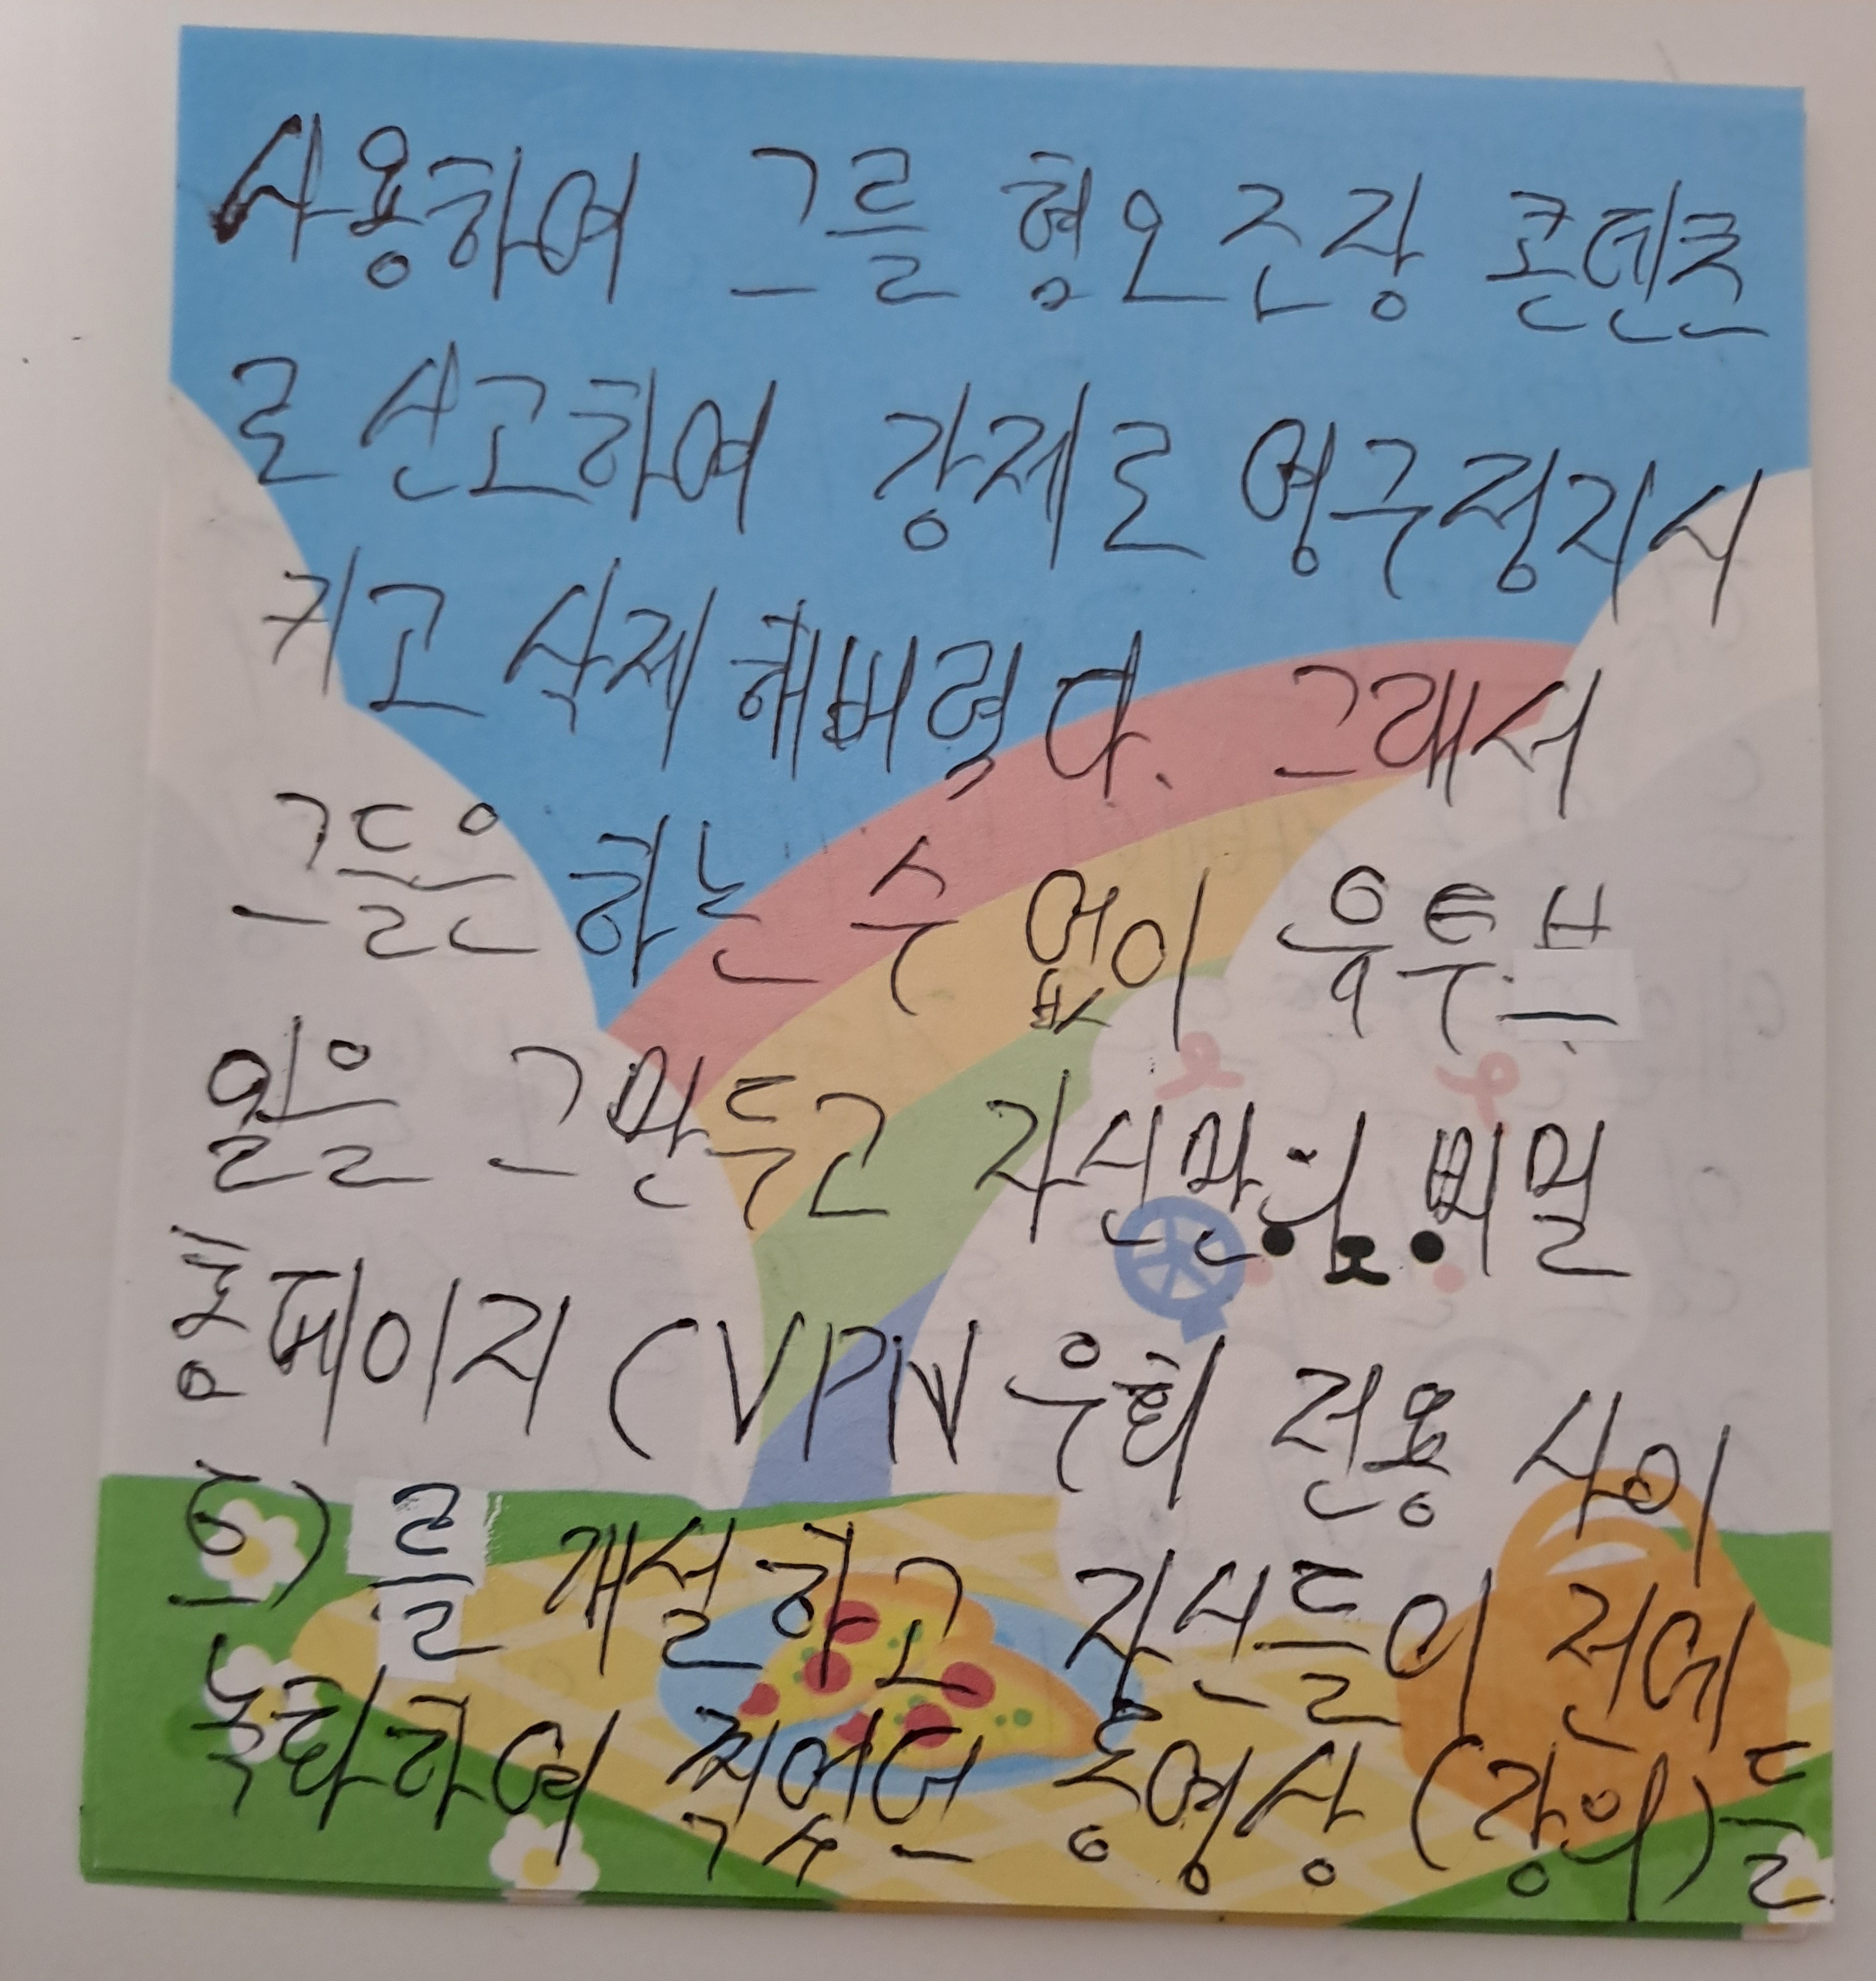 사용하여 그를 혐오조장 콘텐츠
로 신고하여 강제로 영구정지시
키고 삭제해버렸다. 그래서
그들은 하는 수 없이 유투브
일을 그만두고 자신만의 비밀
홈페이지 (VPN 우회 전용 사이
트)를 개설하고 자신들이 전에
녹화하여 찍었던 동영상 (강의)들